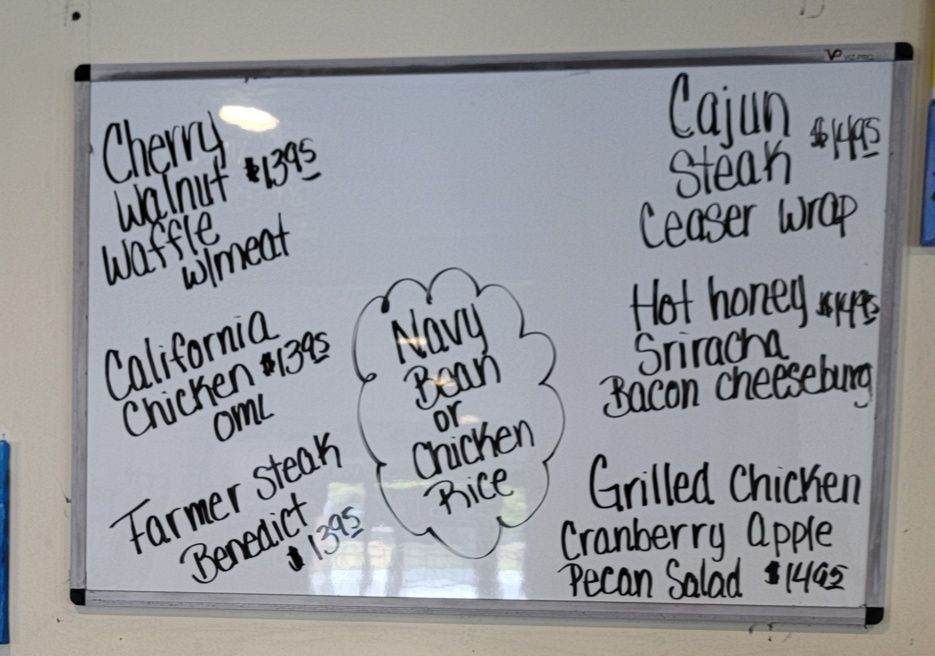 Cherry
Walnut $13.95
Waffle
w/meat
California
Chicken $13.95
OML
Farmer Steak
Benedict
$13.95
Navy
Bean
or
Chicken
Rice
Cajun
Steak $14.95
Ceaser Wrap
Hot honey $14.95
Sriracha
Bacon cheeseburg
Grilled Chicken
Cranberry Apple
Pecan Salad $14.95